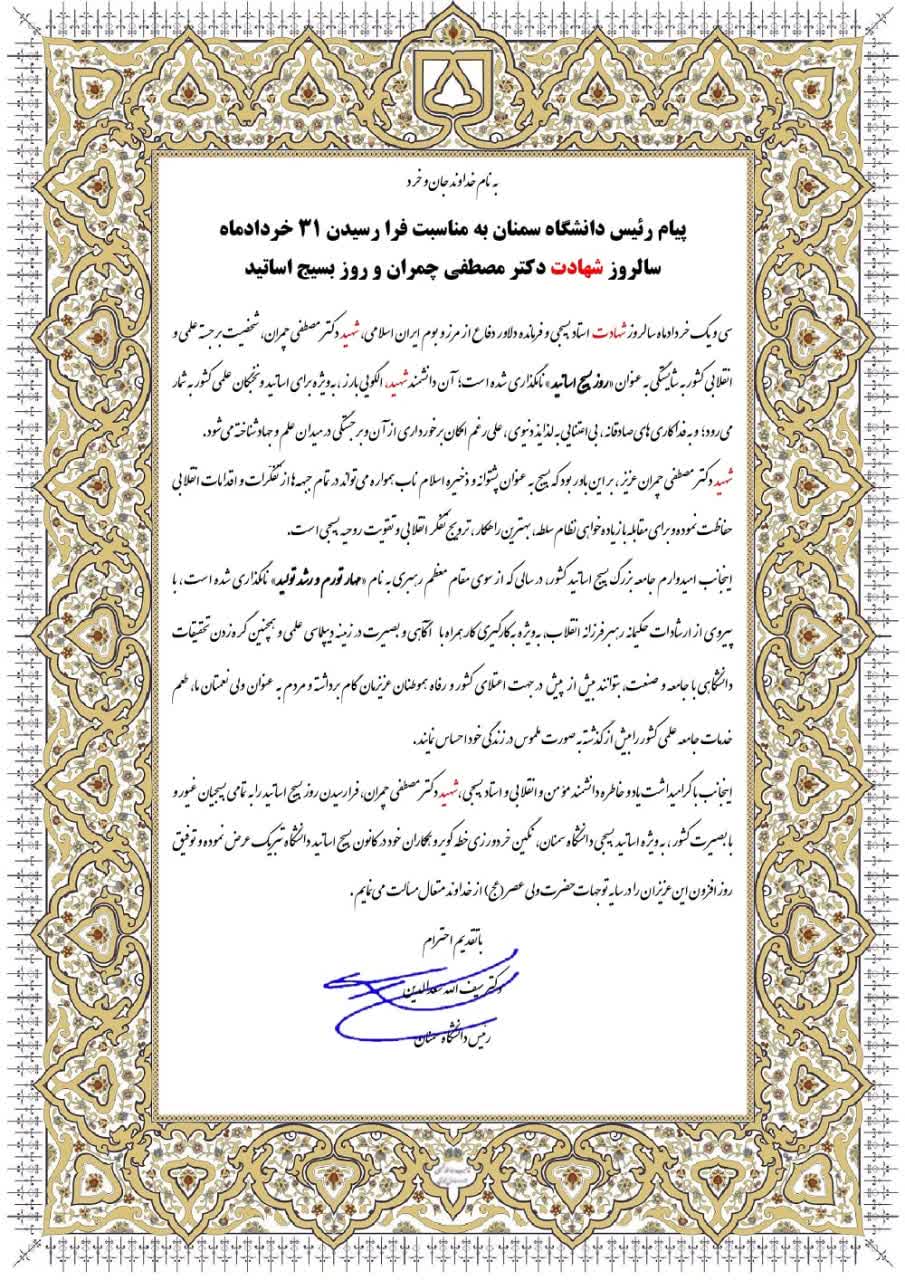 به نام خداوند جان و خرد
پیام رئیس دانشگاه سمنان به مناسبت فرا رسیدن ۳۱ خردادماه
سالروز شهادت دکتر مصطفی چمران و روز بسیج اساتید
سی و یک خردادماه سالروز شهادت استاد بسیجی و فرمانده دلاور دفاع از مرز و بوم ایران اسلامی، شهید دکتر مصطفی چمران، شخصیت برجسته علمی و
انقلابی کشور به شایستگی به عنوان «روز بسیج اساتید» نامگذاری شده است؛ آن دانشمند شهید، الگویی بارز، به ویژه برای اساتید و نخبگان علمی کشور به شمار
می‌رود؛ و به فداکاری های صادقانه، بی اعتنایی به لذایذ دنیوی، علی رغم امکان برخورداری از آن و برجستگی در میدان علم و جهاد شناخته می‌شود.
شهید دکتر مصطفی چمران عزیز، بر این باور بود که بسیج به عنوان پشتوانه و ذخیره اسلام ناب همواره می‌تواند در تمام جبهه‌ها از تفکرات و اقدامات انقلابی
حفاظت نموده و برای مقابله با زیاده خواهی نظام سلطه، بهترین راهکار، ترویج تفکر انقلابی و تقویت روحیه بسیجی است.
اینجانب امیدوارم جامعه بزرگ بسیج اساتید کشور، در سالی که از سوی مقام معظم رهبری به نام «مهار تورم و رشد تولید» نامگذاری شده است، با
پیروی از ارشادات حکیمانه رهبر فرزانه انقلاب، به ویژه به کارگیری کار همراه با آگاهی و بصیرت در زمینه دیپلماسی علمی و همچنین گره زدن تحقیقات
دانشگاهی با جامعه و صنعت، بتوانند بیش از پیش در جهت اعتلای کشور و رفاه هموطنان عزیزمان گام برداشته و مردم به عنوان ولی نعمتان ما، طعم
خدمات جامعه علمی کشور را بیش از گذشته به صورت ملموس در زندگی خود احساس نمایند.
اینجانب با گرامیداشت یاد و خاطره دانشمند مؤمن و انقلابی و استاد بسیجی، شهید دکتر مصطفی چمران، فرارسیدن روز بسیج اساتید را به تمامی بسیجیان غیور و
با بصیرت کشور، به ویژه اساتید بسیجی دانشگاه سمنان، نگین خردورزی خطه کویر و همکاران خود در کانون بسیج اساتید دانشگاه تبریک عرض نموده و توفیق
روز افزون این عزیزان را در سایه توجهات حضرت ولی عصر (عج) از خداوند متعال مسألت می‌نمایم.
با تقدیم احترام
دکتر سیف الله سعدالدین
رئیس دانشگاه سمنان